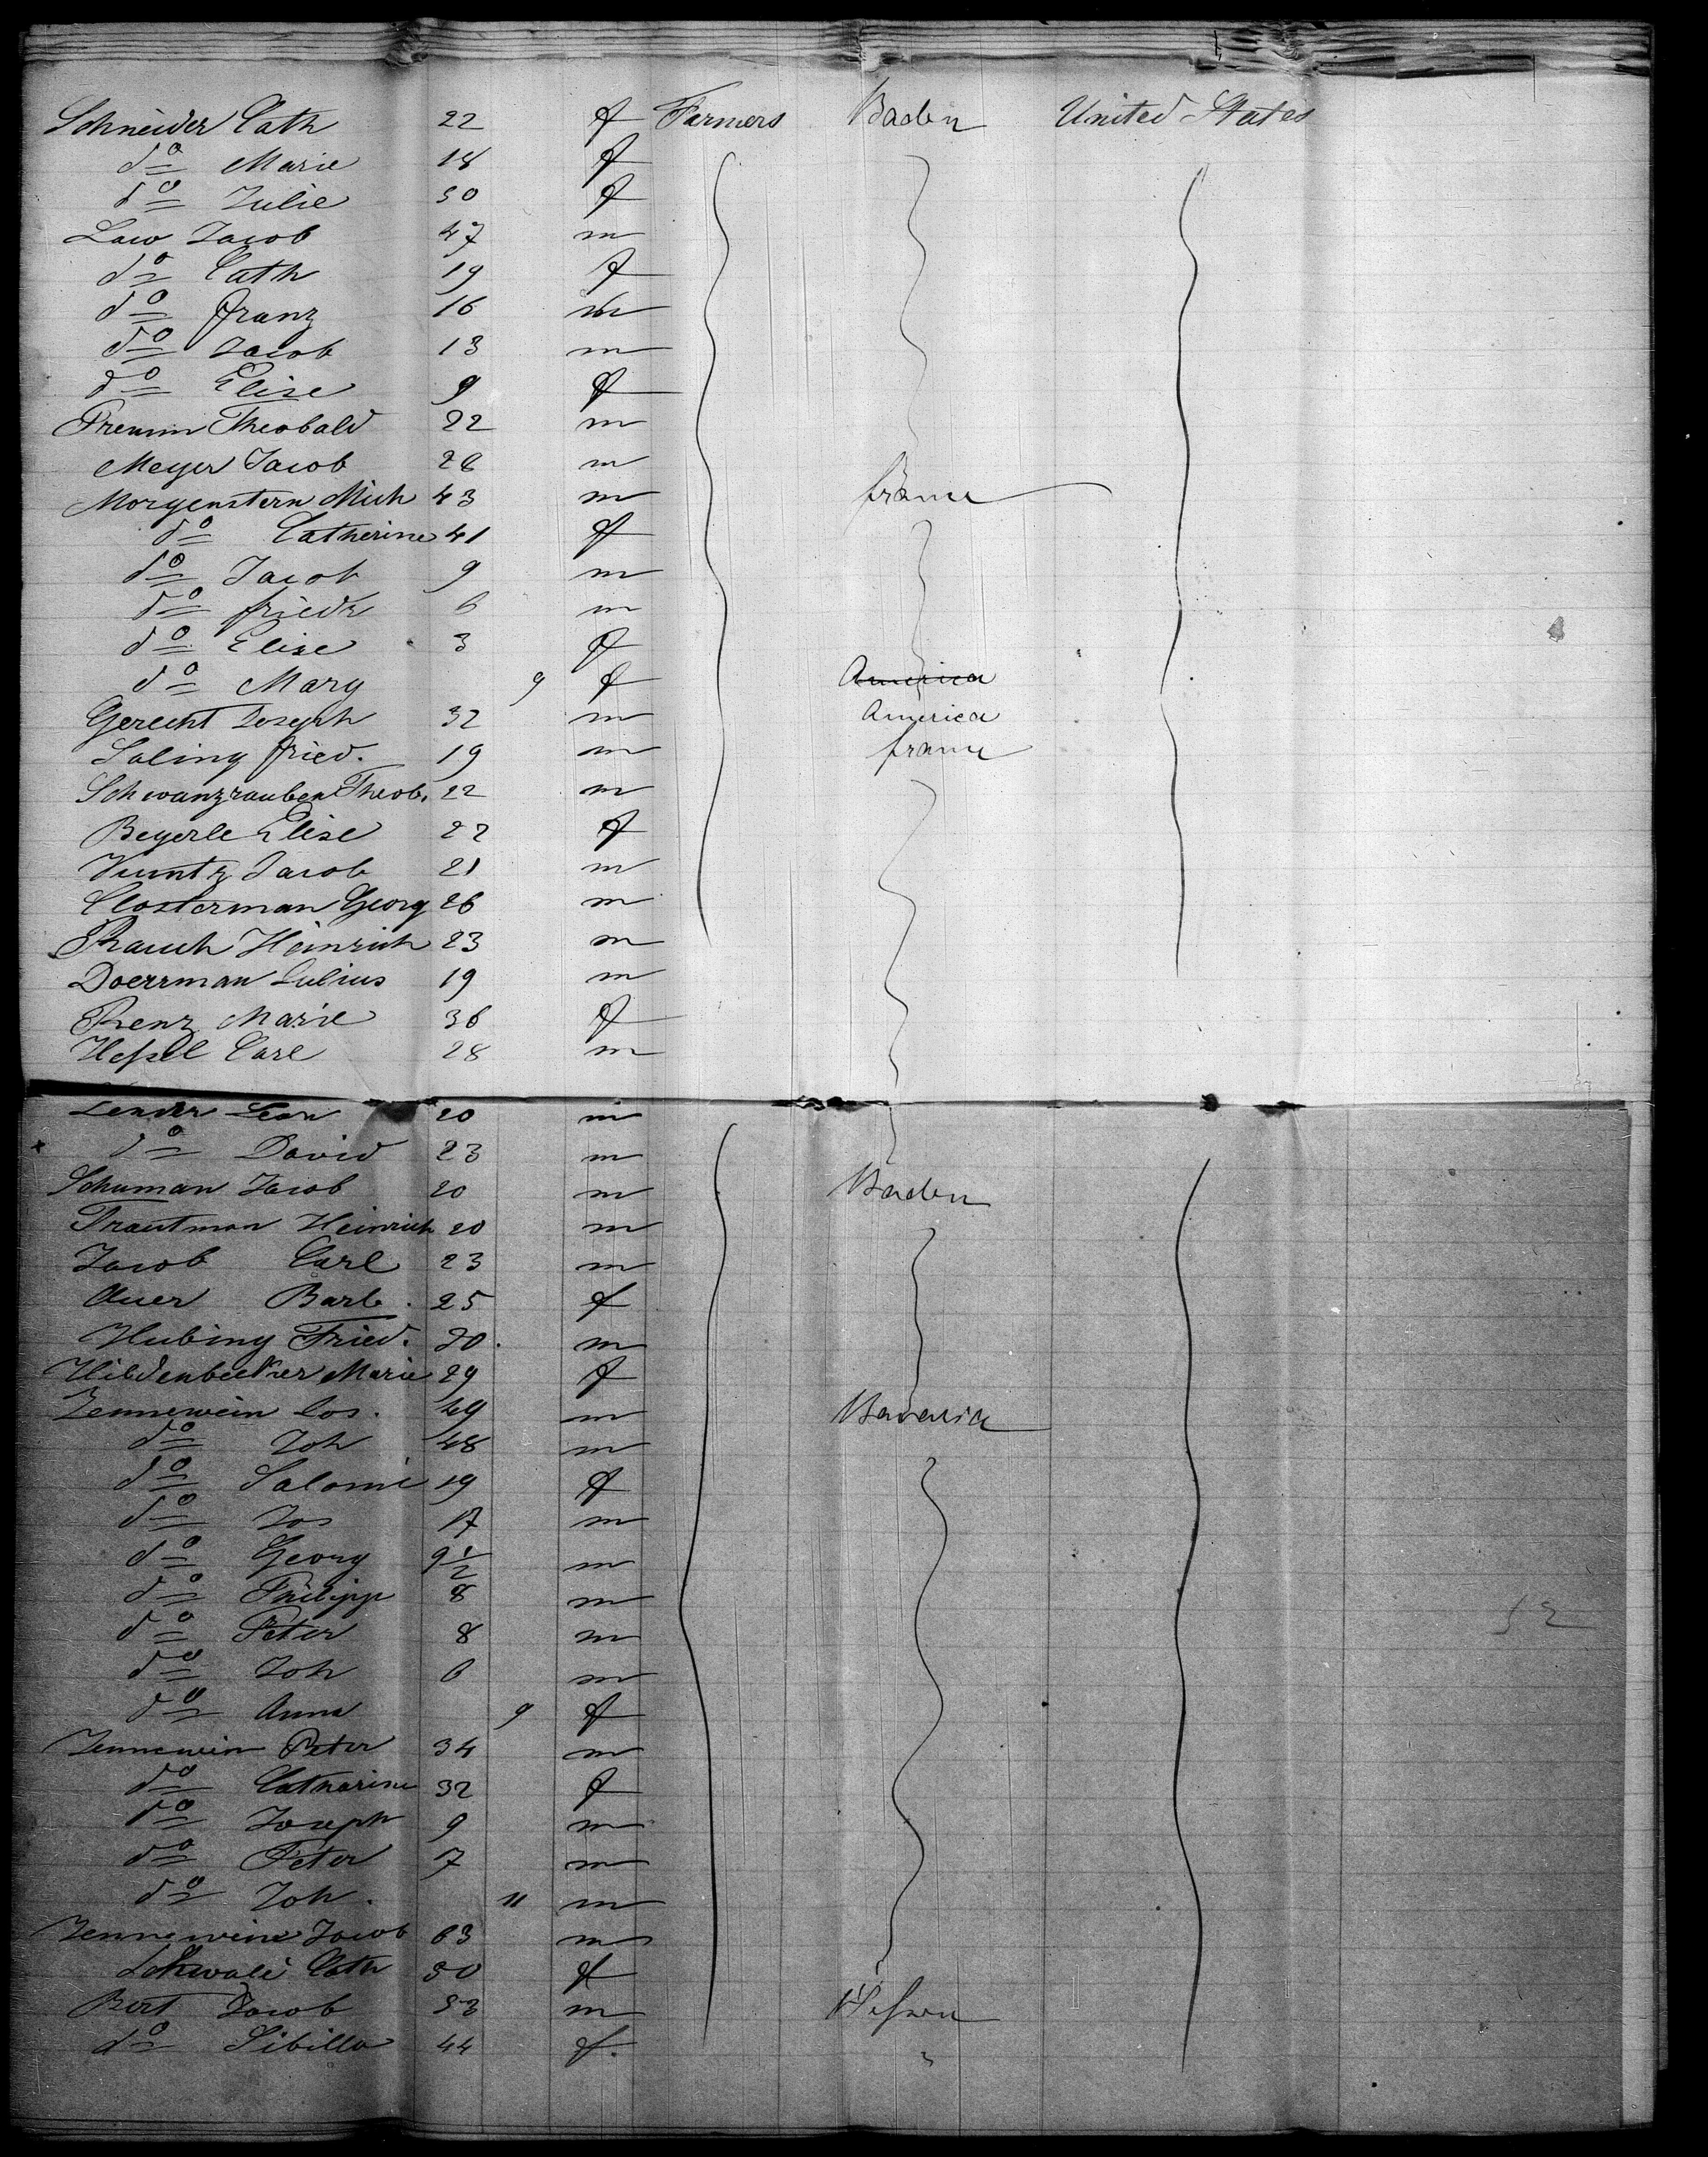 Schneider Cath 22 f Farmers Baden United States
do Marie 18 f
do Julie 50 f
Law Jacob 47 m
do Cath 19 f
do Franz 16 m
do Jacob 13 m
do Elise 9 f
Fremm Theobald 22 m
Meyer Jacob 28 m
Morgenstern Mich 43 m france
do Catherine 41 f
do Jacob 9 m
do friedr 6 m
do Elise 3 f
do Mary 9 f America
Gerecht Joseph 32 m America
Saling fried. 19 m france
Schwanzrauben Theob. 22 m
Beyerle Elise 22 f
Kuntz Jacob 21 m
Closterman Georg 26 m
Rauch Heinrich 23 m
Doerrman Julius 19 m
Renz Marie 36 f
Hessel Carl 28 m
Lender Leon 20 m
do David 23 m
Schuman Jacob 20 m Baden
Trautman Heinrich 20 m
Jacob Carl 23 m
Auer Barb. 25 f
Hubing Fried. 20. m
Hildenbecker Marie 29 f
Jennewein Jos. 49 m Bavaria
do Joh 48 m
do Salomé 19 f
do Jos 17 m
do Georg 9 1/2 m
do Philipp 8 m
do Peter 8 m
do Joh 6 m
do Anna 9 f
Jennewein Peter 34 m
do Catharine 32 f
do Joseph 9 m
do Peter 7 m
do Joh. 11 m
Jennewein Jacob 63 m
Cath 50 f
Bert Jacob 53 m Hessen
do Sibilla 44 f. "